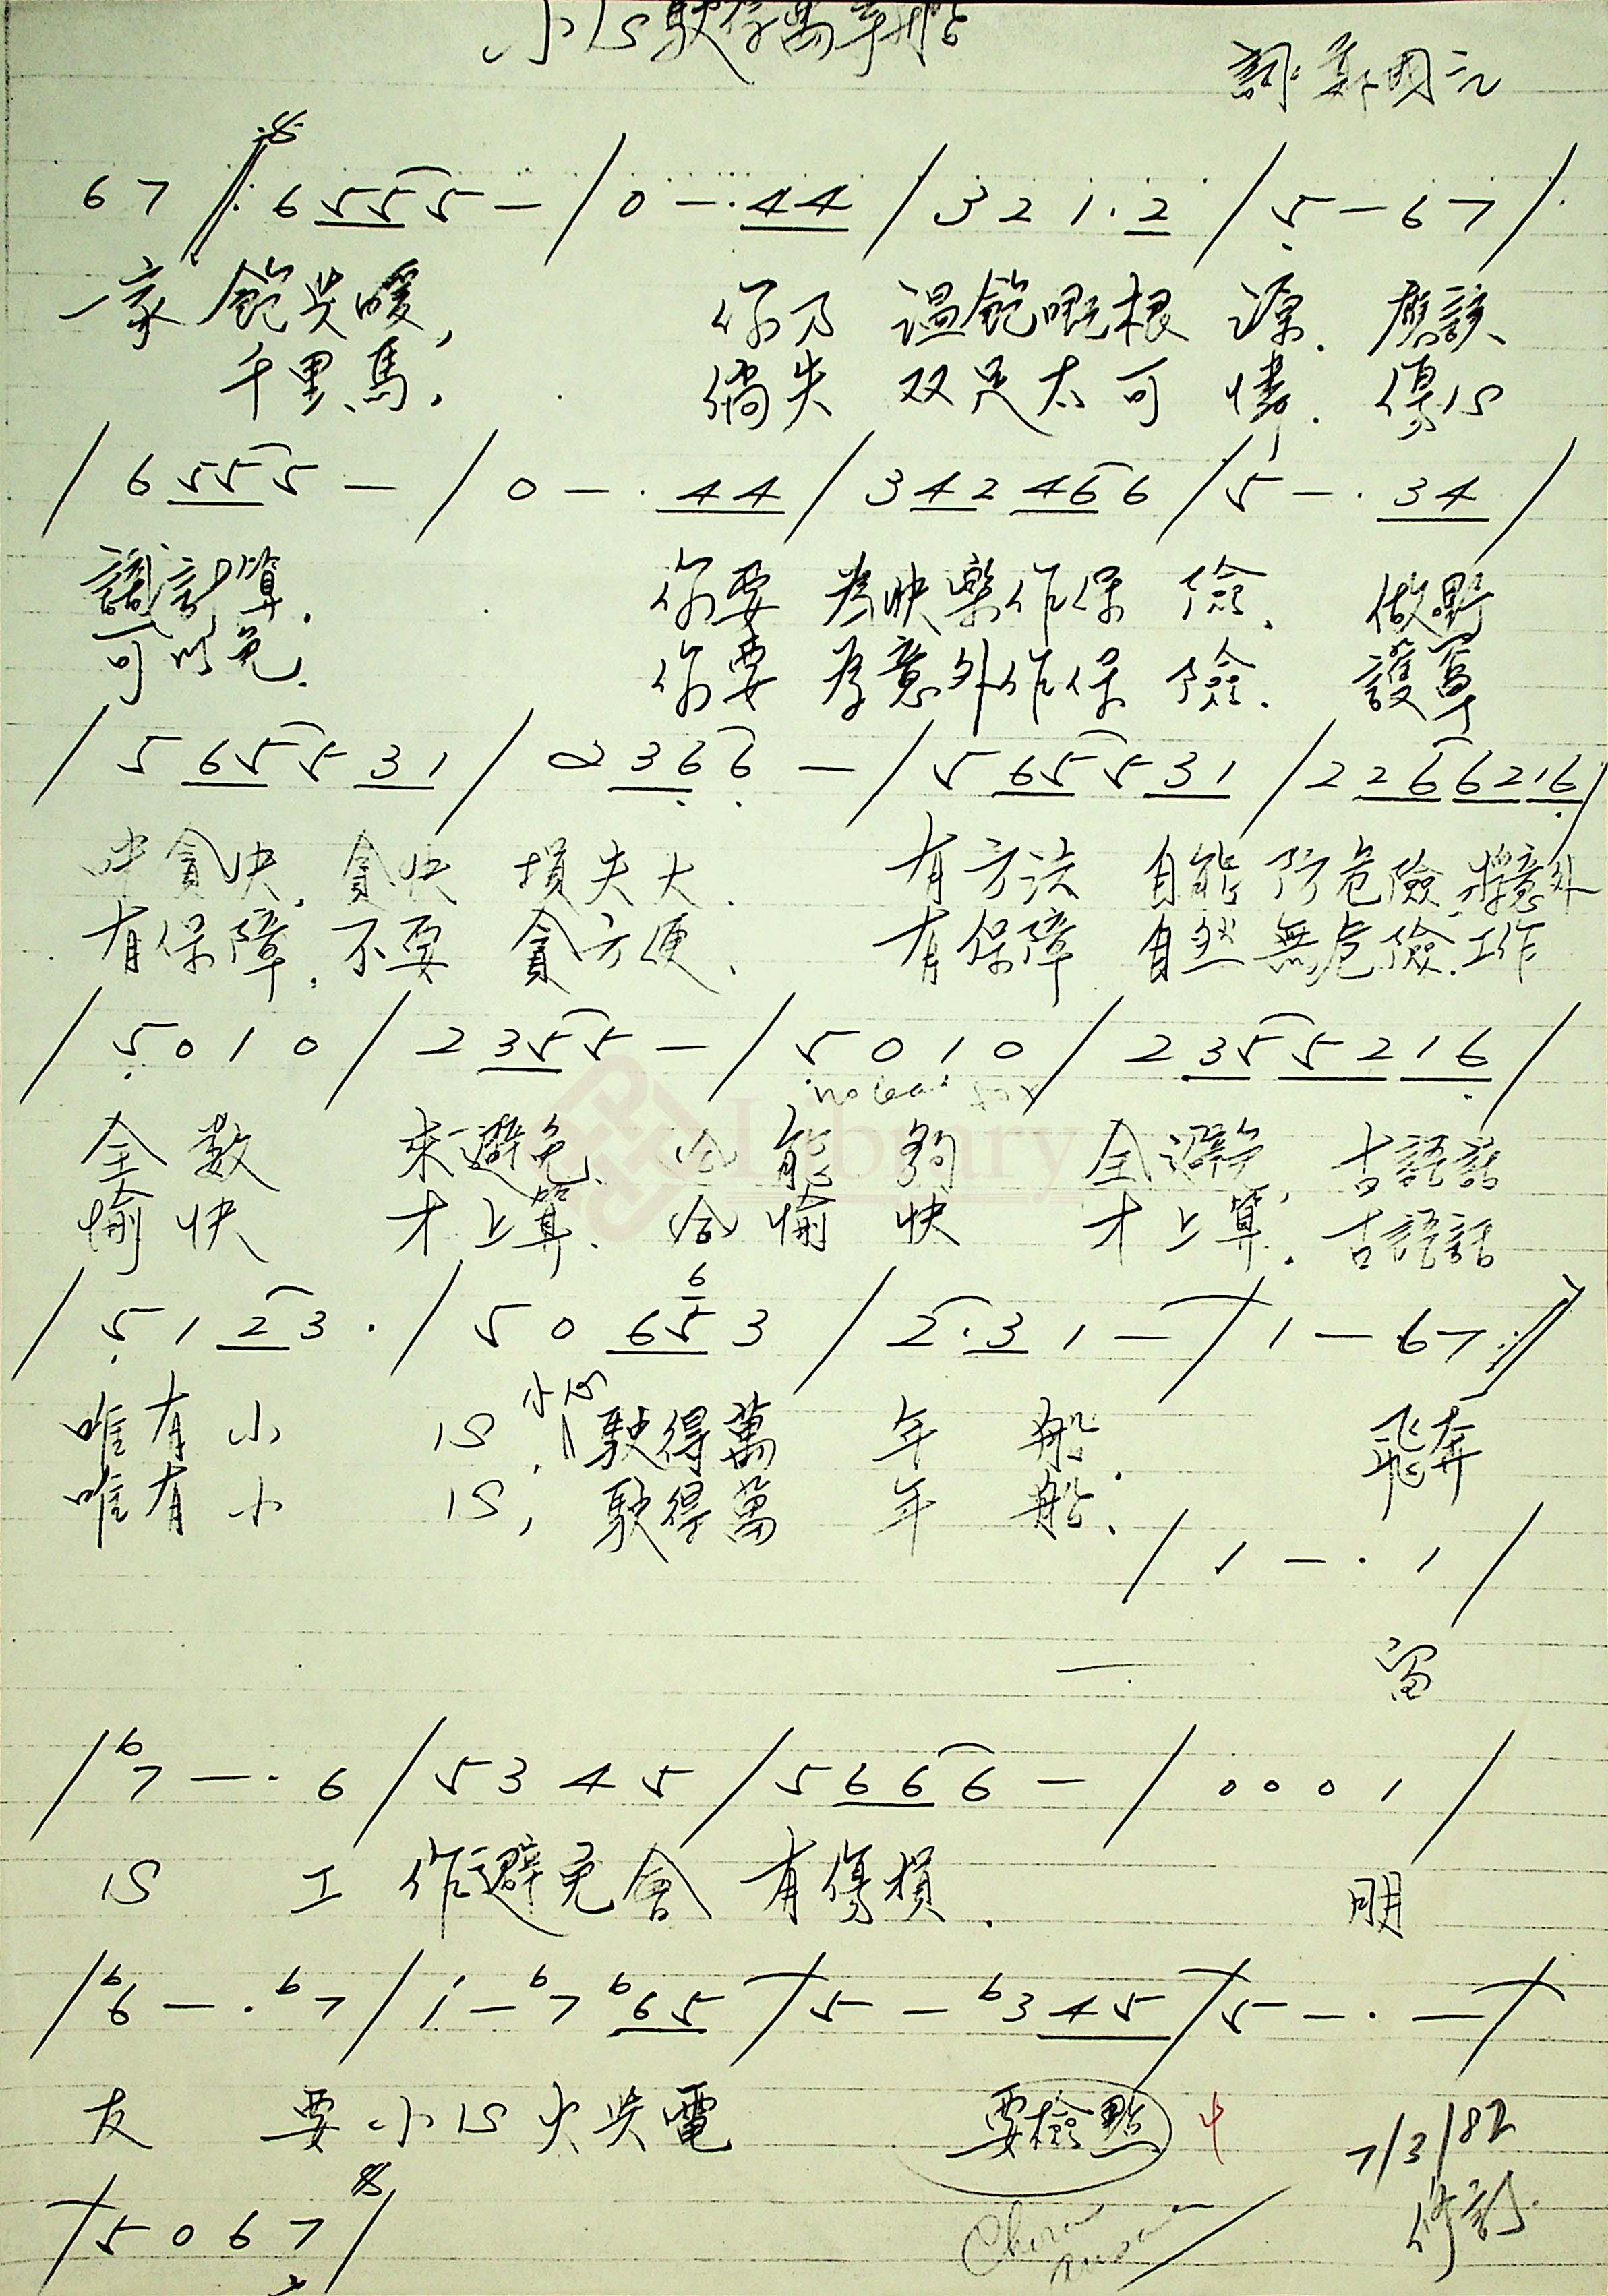 小心駛得萬年船
詞:鄭國江
67 /: 6 5 5 5 - / 0 - · 4 4 / 3 2 1 · 2 / 5 - 6 7 /
一家飽與暖, 你乃 溫飽嘅根 源. 應該
千里馬, 倘失 双足太可 憐. 傷心
/ 6 5 5 5 - / 0 - · 4 4 / 3 4 2 4 6 6 / 5 - · 3 4 /
計算. 你要 為快樂作保 險. 做野
可以免. 你要 為意外作保 險. 護罩
/ 5 6 5 5 3 1 / 2 3 6 6 - / 5 6 5 5 3 1 / 2 2 6 6 2 1 6 /
咪貪快, 貪快 損失大. 有方法 自能防危險. 將意外
有保障, 不要 貪方便. 有保障 自然無危險. 工作
/ 5 0 1 0 / 2 3 5 5 - / 5 0 1 0 / 2 3 5 5 2 1 6 /
no lead for
Library
全數 來避免. 能夠 全避免, 古語話
愉快 才上算. 愉快 才上算. 古語話
6
/ 5 1 2 3 · / 5 0 6 5 3 / 2 · 3 1 - / 1 - 6 7 :/
小心
唯有小 心, 駛得萬 年 船. 飛奔
唯有小 心, 駛得萬 年 船.
/ 1 - · 1 /
一 留
/ b7 - · 6 / 5 3 4 5 / 5 6 6 6 - / 0 0 0 1 /
心 工 作避免會 有傷損. 明
/ b6 - · b7 / i - b7 b6 5 / 5 - b3 4 5 / 5 - · - /
友 要小心火與電 要檢點
7/3/82
修訂.
/ 5 0 6 7 /